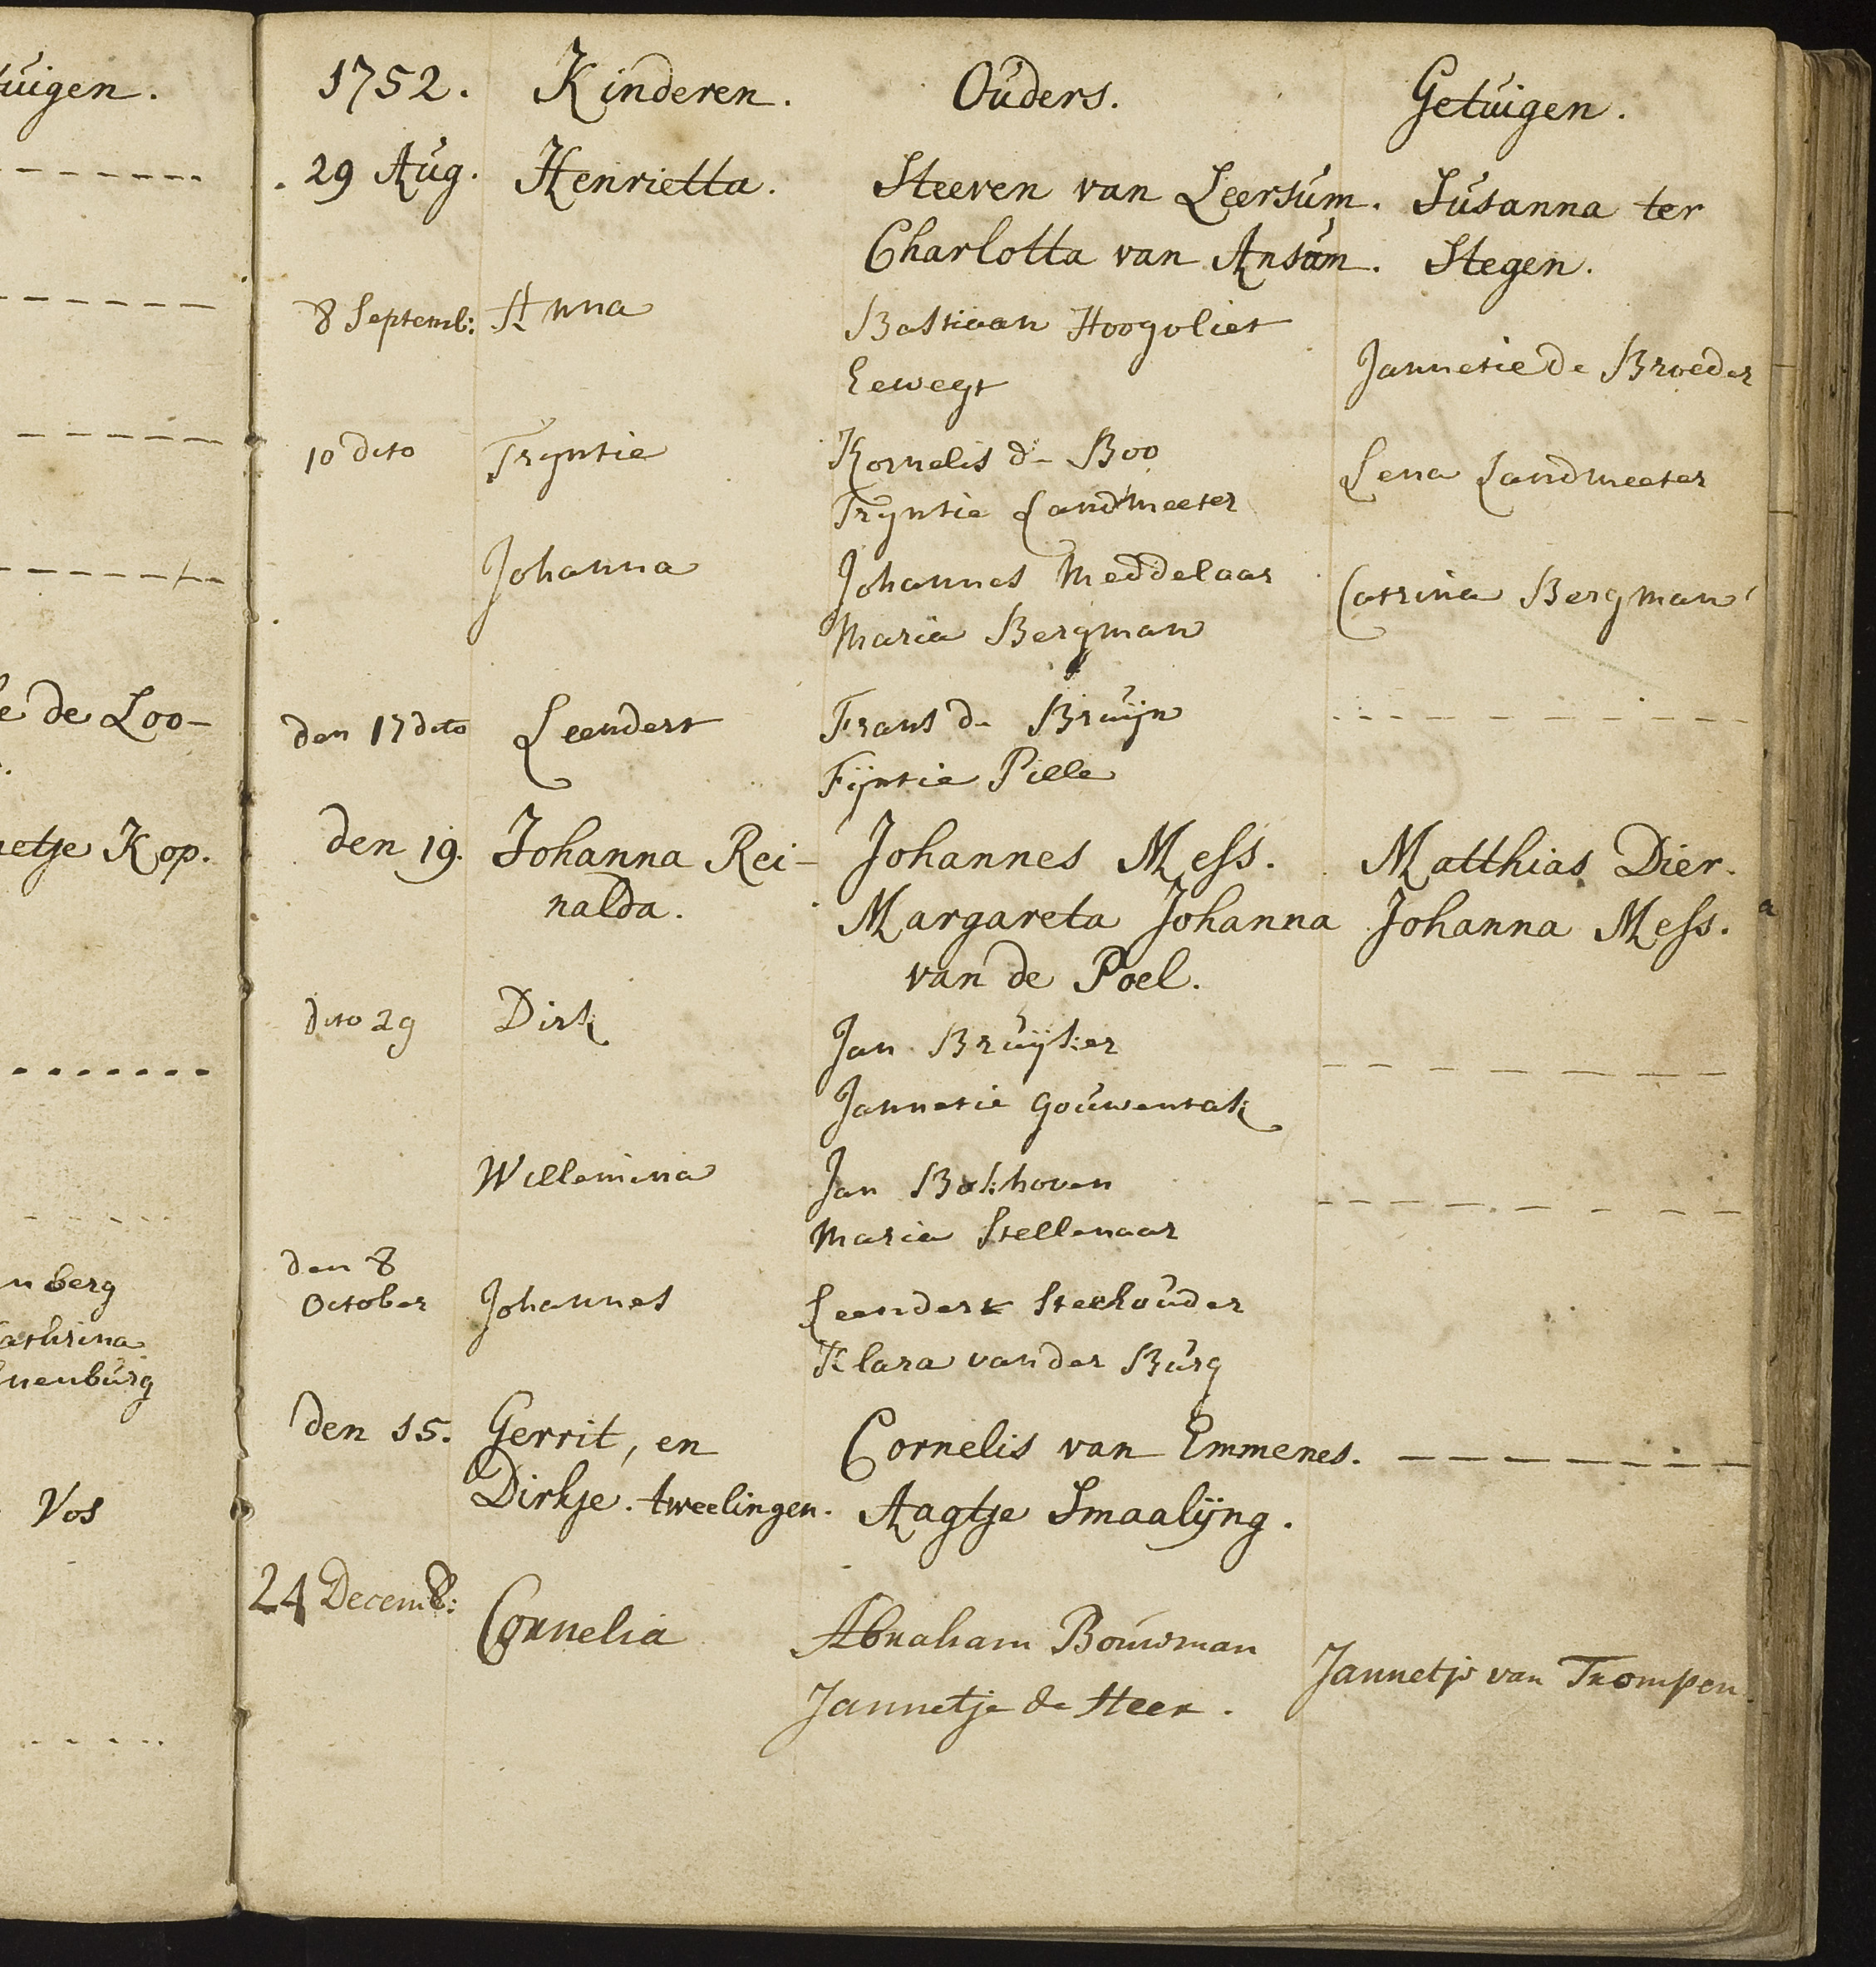 tuigen.
e de Loo-
netje Kop.
nberg
Cathrina
nenbúrg
Vos
1752. Kinderen. Oúders. Getúigen.
29 Aúg. Henrietta. Steeven van Leersúm. Súsanna ter
Charlotta van Ansúm. Stegen.
8 Septemb: Anna Bastiaan Hoogvliet
Eewegt Jannetie de Broeder
10 dito Tryntie Kornelis de Boo Lena Landmeeter
Tryntie Landmeeter
Johanna Johannes Meddelaar Catrina Bergman
Maria Bergman
den 17 dito Leendert Frans de Brúijn
Fijntie Pille
den 19. Johanna Rei- Johannes Mess. Matthias Dier.
nalda. Margareta Johanna Johanna Mess.
van de Poel.
dito 29 Dirk Jan Brúijker
Jannetie Goúwentak
Willemina Jan Bokhoven
Maria Stellenaar
den 8
October Johannes Leendert Steehoúder
Klara van der Búrg
den 15. Gerrit, en Cornelis van Emmenes.
Dirkje. tweelingen. Aagtje Smaalijng.
24 Decemb: Cornelia Abraham Boúwman
Jannetje de Heer. Jannetje van Trompen.